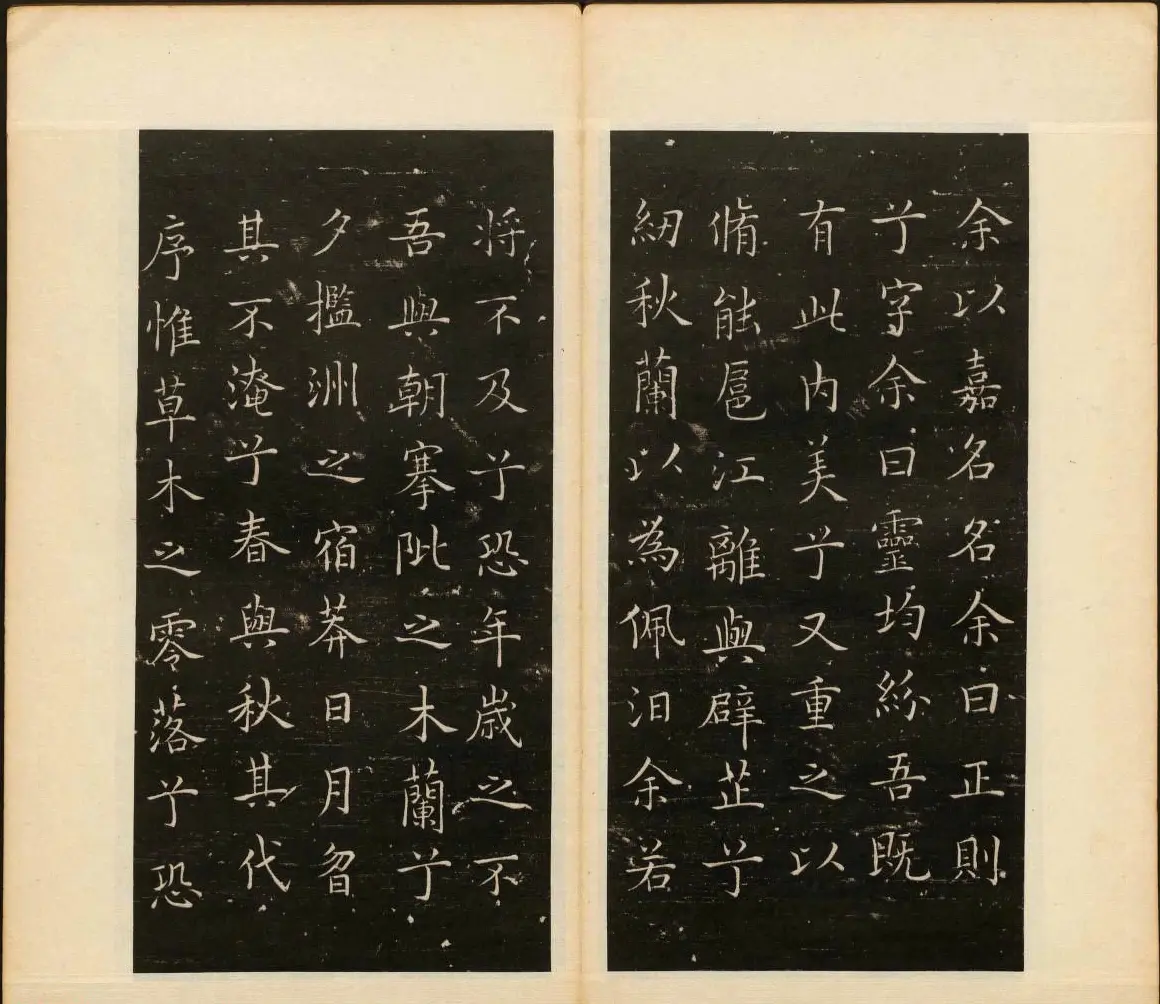 余以嘉名名余曰正則
兮字余曰靈均紛吾既
有此内美兮又重之以
脩能扈江離與辟芷兮
紉秋蘭以為佩汨余若
將不及兮恐年歲之不
吾與朝搴阰之木蘭兮
夕擥洲之宿莽日月曶
其不淹兮春與秋其代
序惟草木之零落兮恐